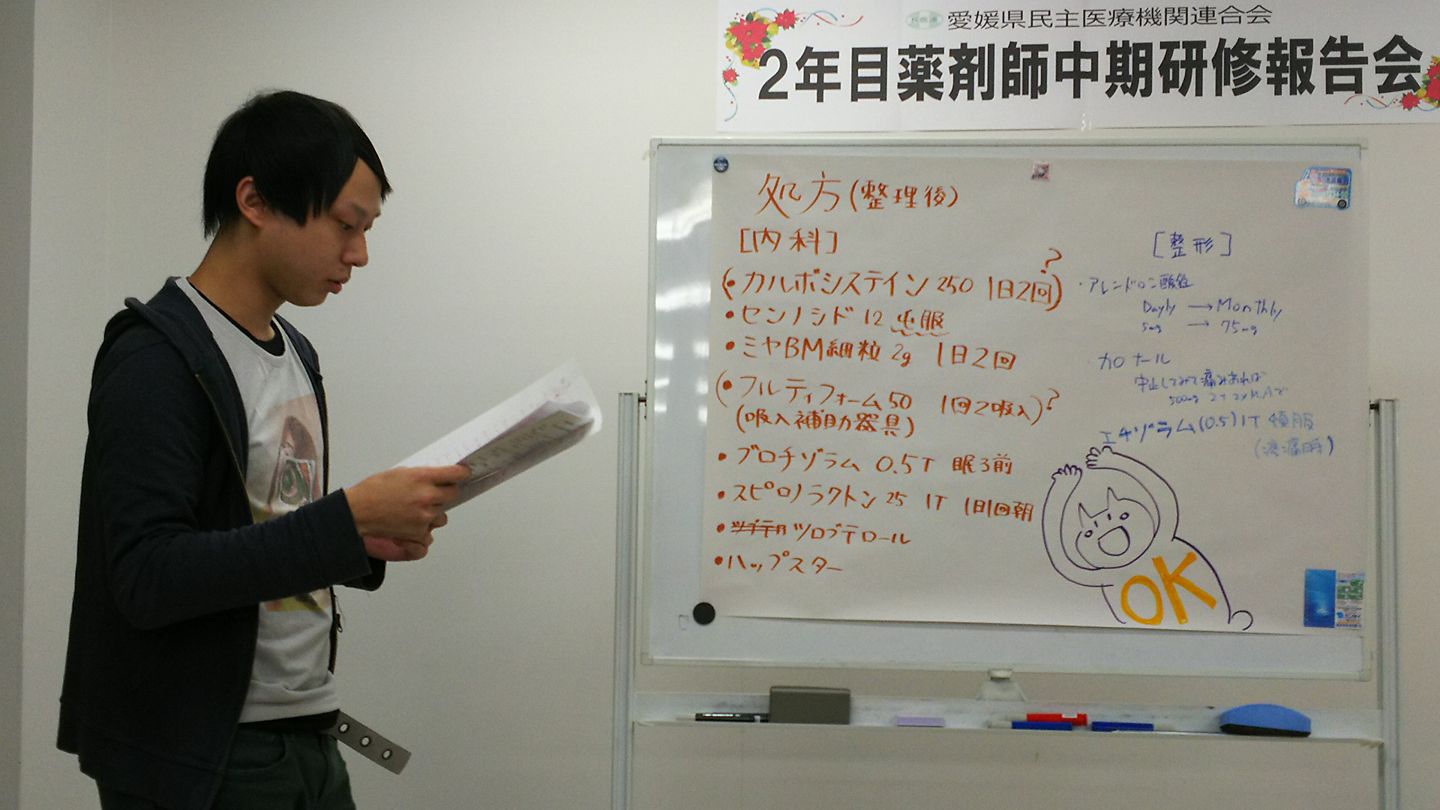 愛媛県民主医療機関連合会
2年目薬剤師中期研修報告会
処方(整理後)
[内科]
(・カルボシステイン 250 1日2回)?
・センノシド 12 屯服
・ミヤBM細粒 2g 1日2回
(・フルティフォーム 50 1回2吸入)?
(吸入補助器具)
・ブロチゾラム 0.5T 眠る前
・スピロノラクトン 25 1T 1日1回朝
・ツロブテロール
・ハップスター
[整形]
・アレンドロン酸
Dayly → Monthly
5mg → 75mg
・カロナール
中止してみて痛みあれば
500mg 2T 2×M.Aで
エチゾラム(0.5) 1T 頓服
OK